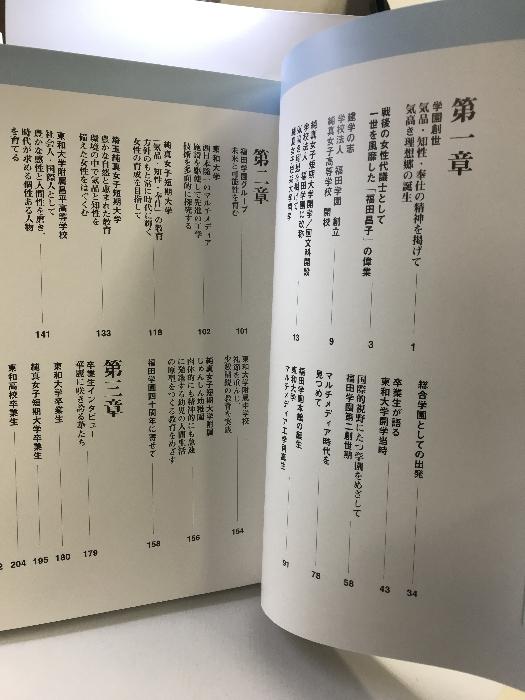 第一章
学園創世
気品・知性・奉仕の精神を掲げて
気高き理想郷の誕生
1
戦後の女性代議士として
一世を風靡した「福田昌子」の偉業
3
建学の志
学校法人 福田学園 創立
純真女子高等学校 開校
9
純真女子短期大学開学/国文科開設
学校法人 福田学園に改称
13
総合学園としての出発
34
卒業生が語る
東和大学開学当時
43
国際的視野にたつ学園をめざして
福田学園第二創世期
58
マルチメディア時代を
見つめて
78
福田学園本館の誕生
東和大学
マルチメディア工学科誕生
91
第二章
福田学園グループ
未来と可能性を育む
101
東和大学
西日本随一のマルチメディア
施設を駆使して先進の工学
技術を多角的に探究する
102
純真女子短期大学
「気品・知性・奉仕」の教育
方針のもと常に時代に輝く
女性の育成を目指して
118
埼玉純真女子短期大学
豊かな自然と恵まれた教育
環境の中で気品と知性を
備えた女性をはぐくむ
133
東和大学附属昌平高等学校
社会人・国際人として
豊かな感性と人間性を磨き、
時代が求める個性ある人物
を育てる
141
東和大学附属中学校
礼節を重んじ
少数制の教育を実践
154
純真女子短期大学附属
じゅんしん幼稚園
肉体的にも精神的にも急速
に発達する幼児の人間生活
の原型をつくる教育をめざす
156
福田学園四十周年に寄せて
158
第三章
卒業生インタビュー
華麗に咲き誇る塾たち
179
東和大学卒業生
180
純真女子短期大学卒業生
195
東和高校卒業生
204